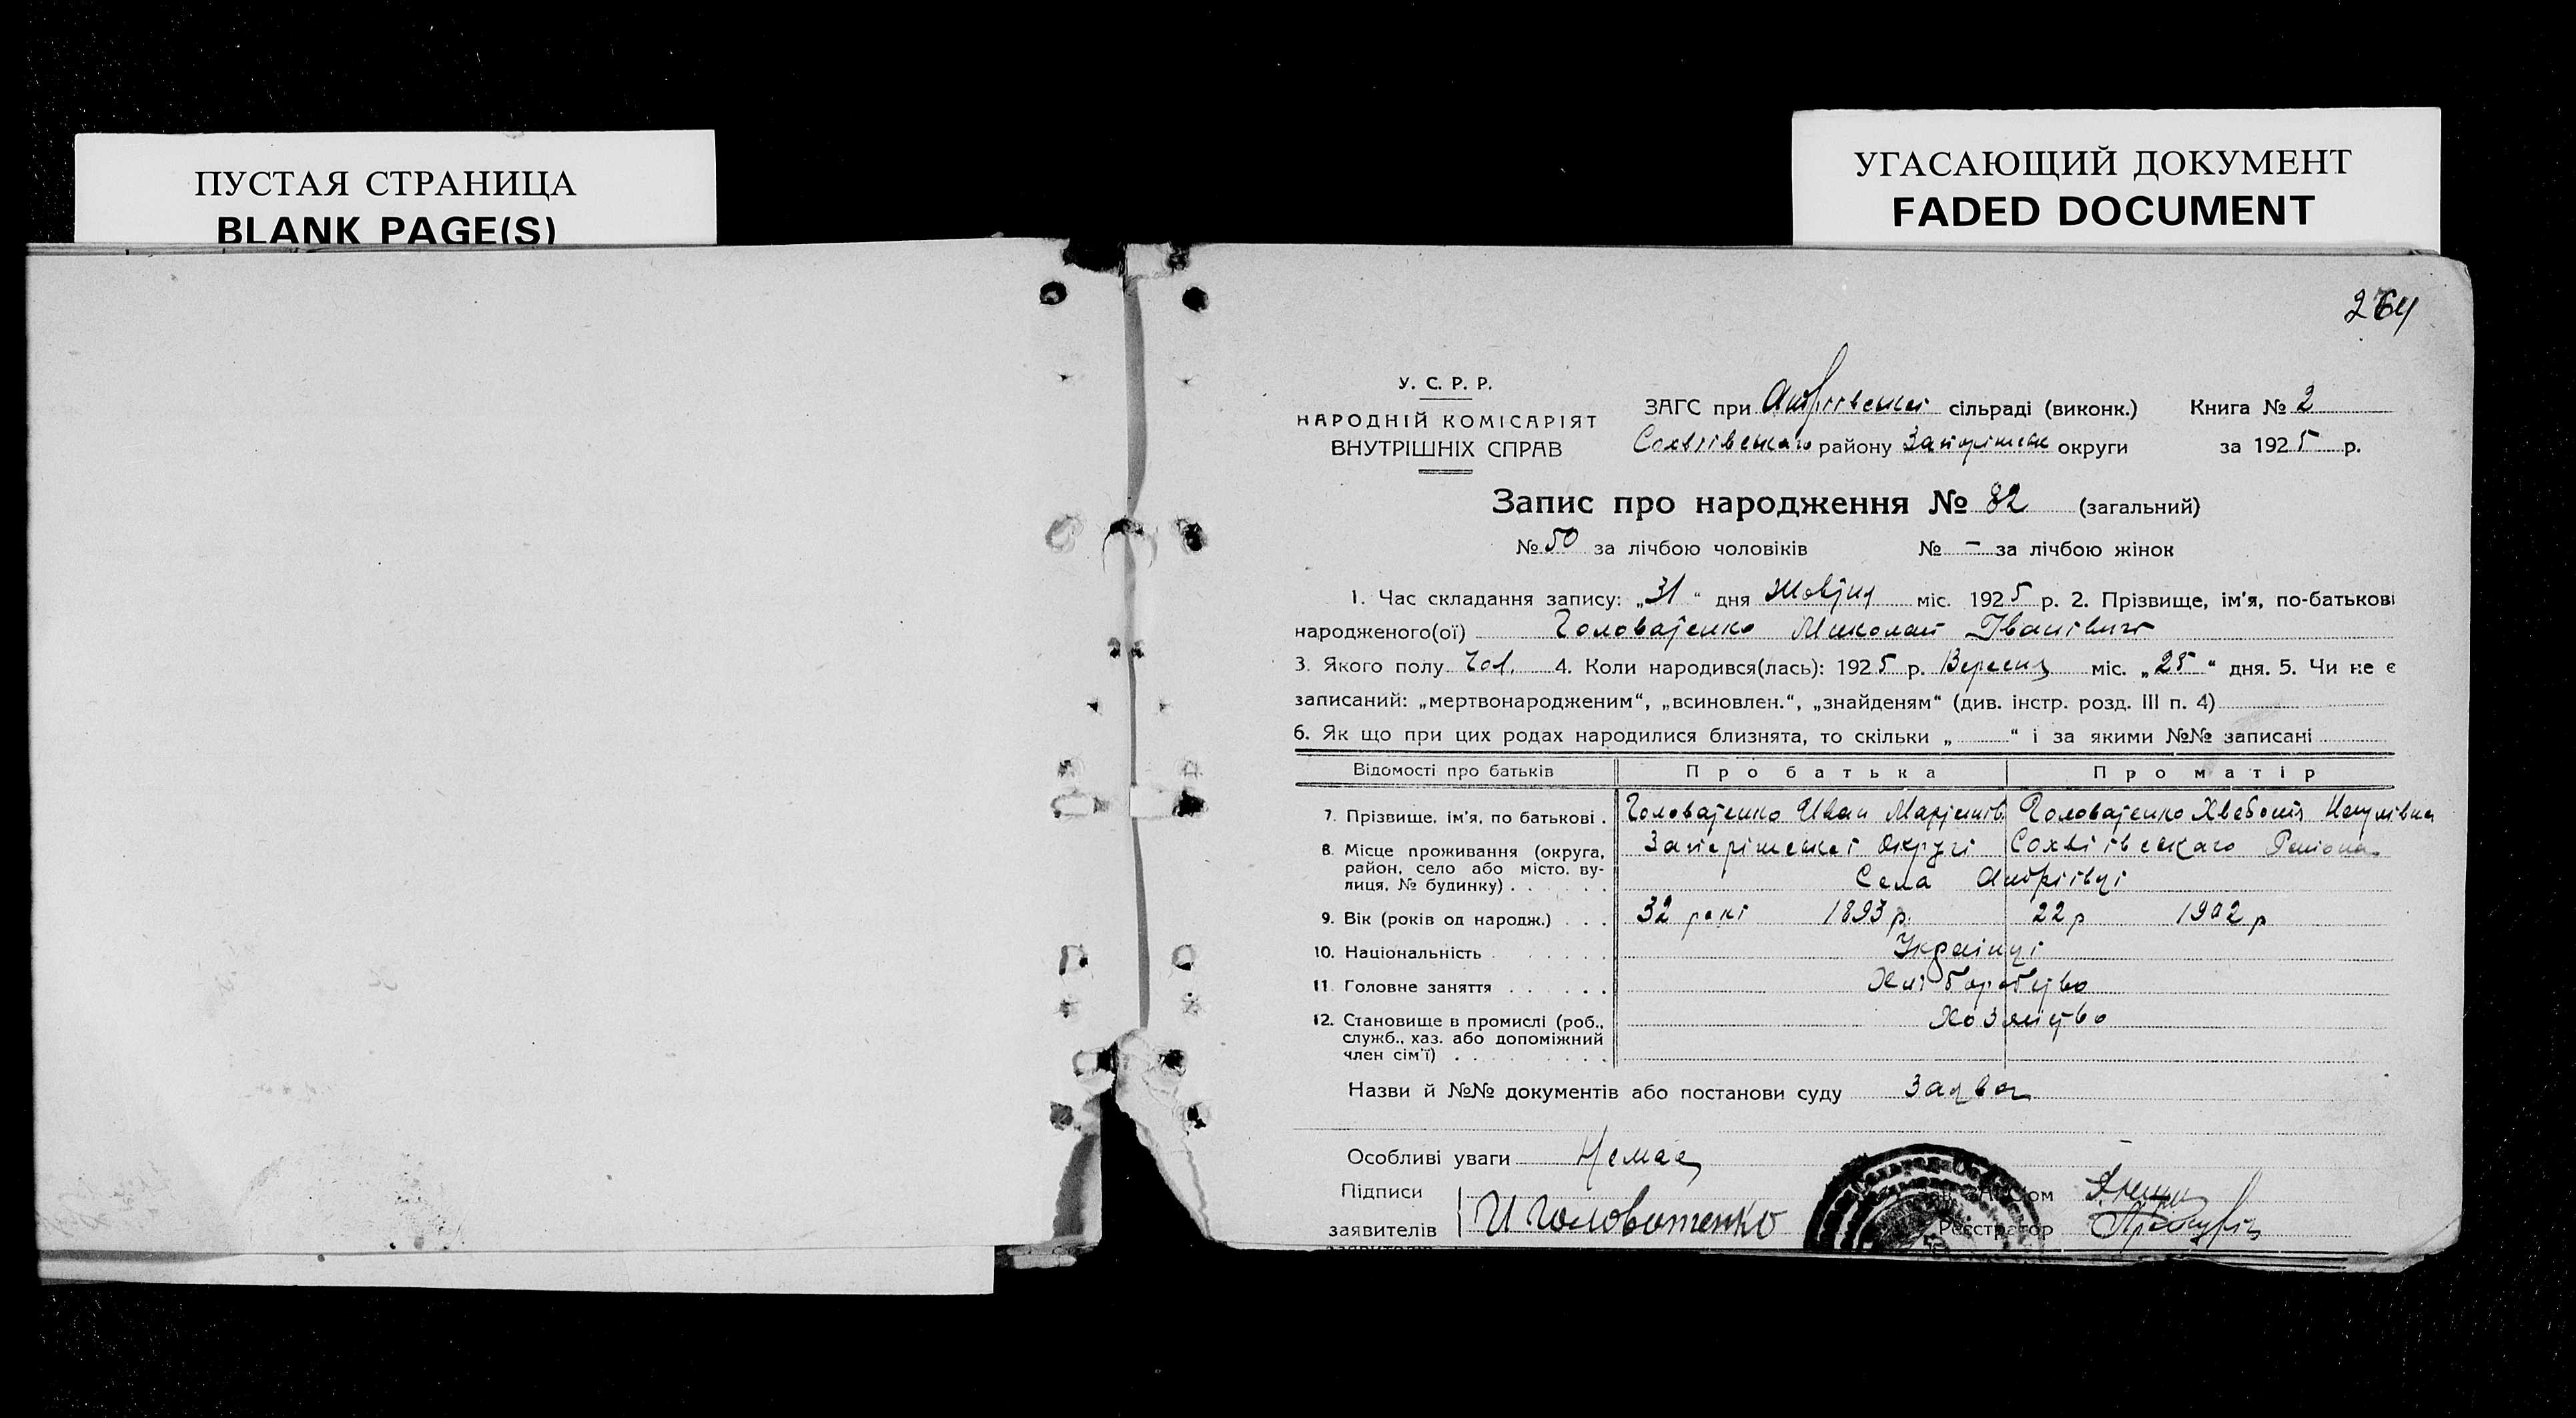 ПУСТАЯ СТРАНИЦА
BLANK PAGE(S)
УГАСАЮЩИЙ ДОКУМЕНТ
FADED DOCUMENT
264
У. С. Р. Р.
НАРОДНІЙ КОМІСАРІЯТ
ВНУТРІШНІХ СПРАВ
ЗАГС при Андріівскей сільраді (виконк.) Книга № 2
Сохвіівскаго району Запоріжск округи за 1925 р.
Запис про народження № 82 (загальний)
№ 50 за лічбою чоловіків № - за лічбою жінок
1. Час складання запису: „31“ дня Жовтня міс. 1925 р. 2. Прізвище, ім'я, по-батькові
народженого(ої) Головатенко Миколай Іванівич
3. Якого полу Чол. 4. Коли народився(лась): 1925 р. Вересня міс. „28“ дня. 5. Чи не є
записаний: „мертвонародженим“, „всиновлен.“, „знайденям“ (див. інстр. розд. III п. 4)
6. Як що при цих родах народилися близнята, то скільки „ “ і за якими №№ записані
Відомості про батьків Про батька Про матір
7. Прізвище, ім'я, по батькові . Головатенко Иван Головатенко
8. Місце проживання (округа, район, село або місто, вулиця, № будинку) . Запоріжскеі Округі Сохвіівскаго Раиона
Села Андріівці
9. Вік (років од народж.) . . . 32 рокі 1893 р. 22 р 1902 р
10. Національність Українці
11. Головне заняття Хліборобство
12. Становище в промислі (роб., Хозяйство
служб., хаз. або допоміжний
член сім'ї)
Назви й №№ документів або постанови суду Заява
Особливі уваги Немає
Підписи
заявителів И Головатенко
Реєстратор